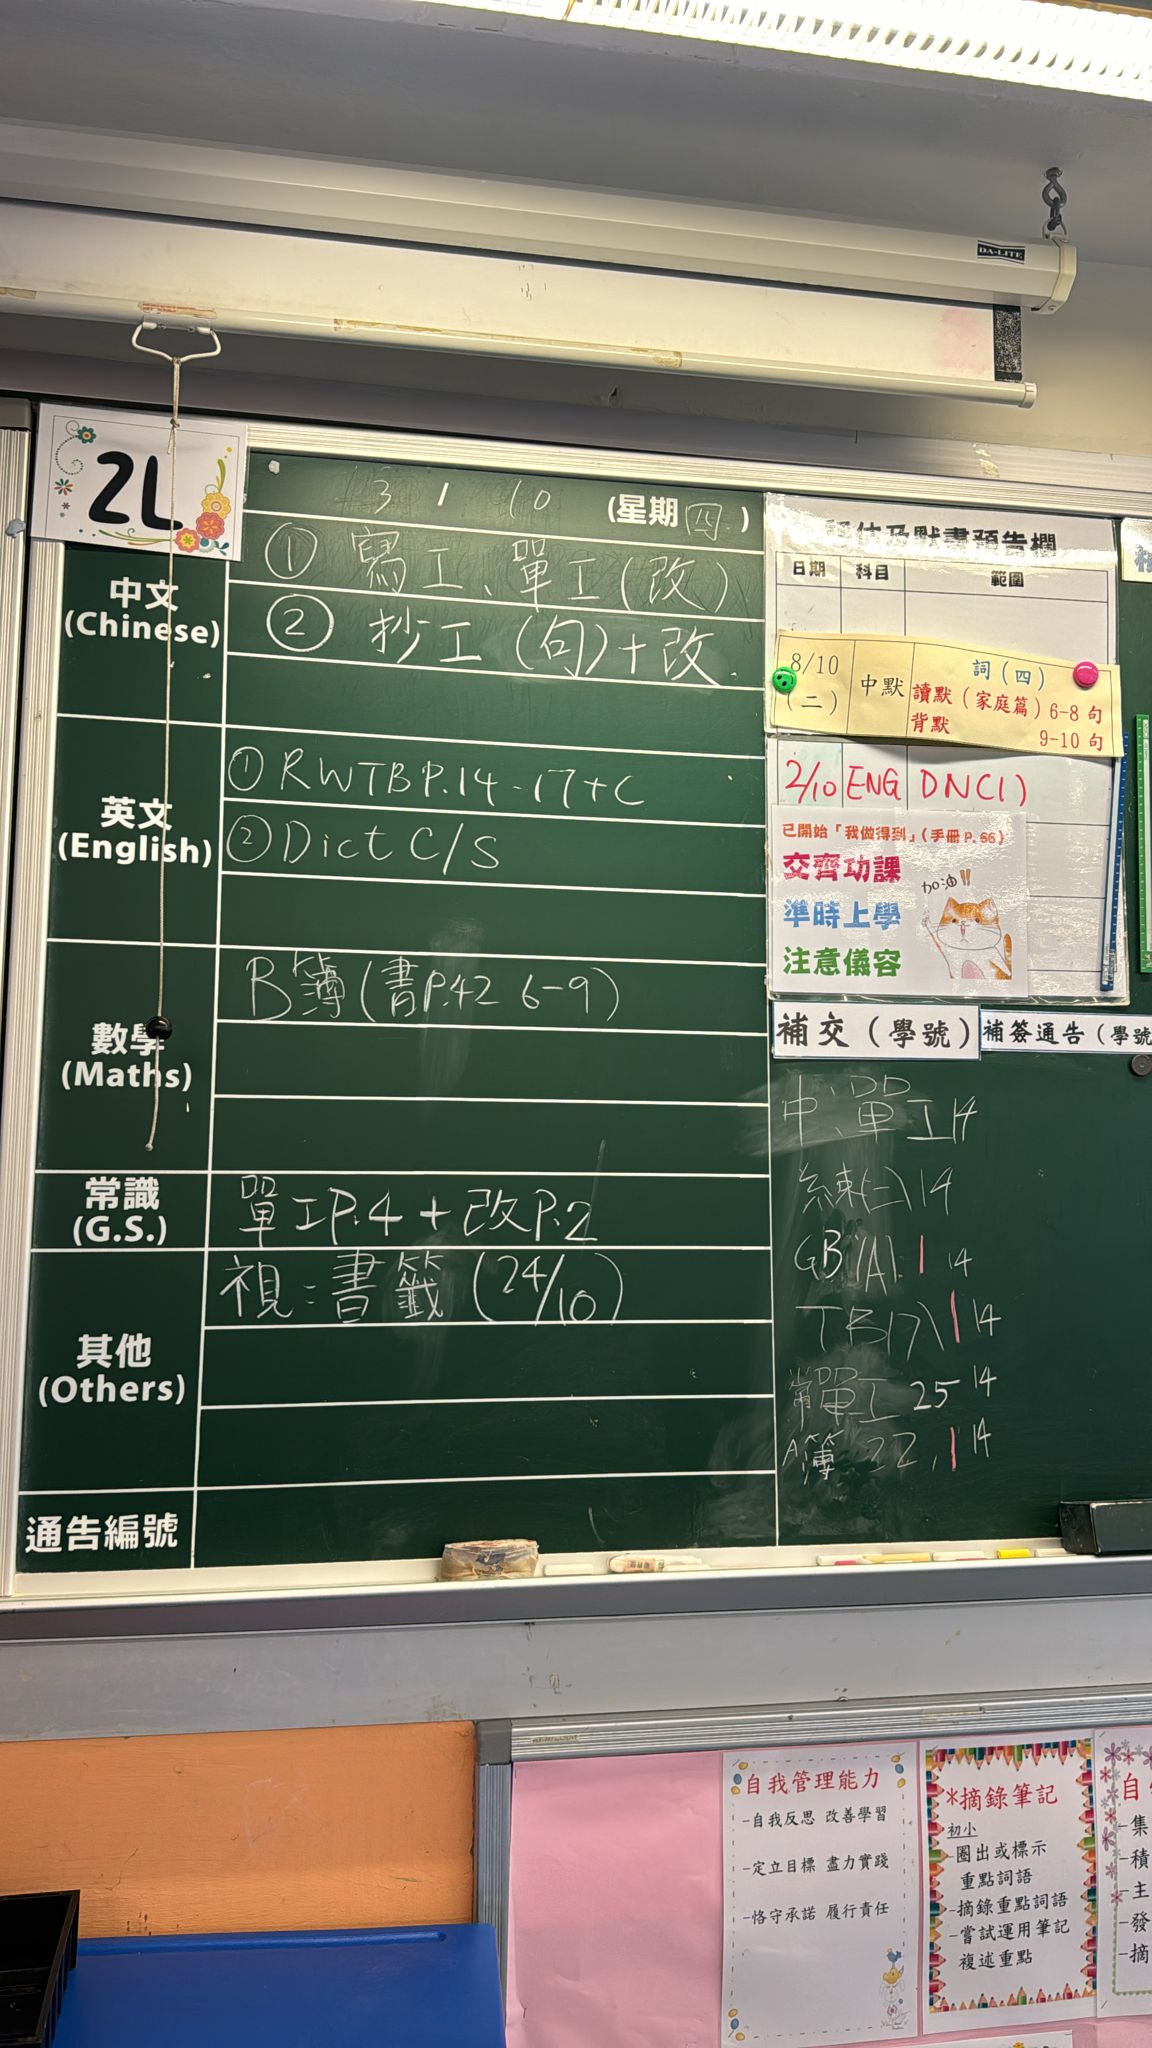 DA-LITE
2L
3 1 10 (星期四)
中文
(Chinese)
① 寫工、單工(改)
② 抄工(句)+改.
英文
(English)
① RWTB P.14-17+C
② Dict C/S
數學
(Maths)
B簿(書P.42 6-9)
常識
(G.S.)
單工P.4 + 改P.2
其他
(Others)
視:書籤(24/10)
通告編號
估及默書預告欄
日期 科目 範圍
8/10 (二) 中默 詞(四)
讀默(家庭篇)6-8句
背默 9-10句
2/10 ENG DNC(1)
已開始「我做得到」(手冊P.66)
交齊功課
加油!!
準時上學
注意儀容
補交(學號)
補簽通告(學號
中、單工 14
練(二) 14
GB(A) 1 14
TB(7) 1 14
常單工 25 14
A簿 22, 1 14
自我管理能力
-自我反思 改善學習
-定立目標 盡力實踐
-恪守承諾 履行責任
*摘錄筆記
初小
-圈出或標示
重點詞語
-摘錄重點詞語
-嘗試運用筆記
複述重點
自
-集
-積
-主
-發
-摘